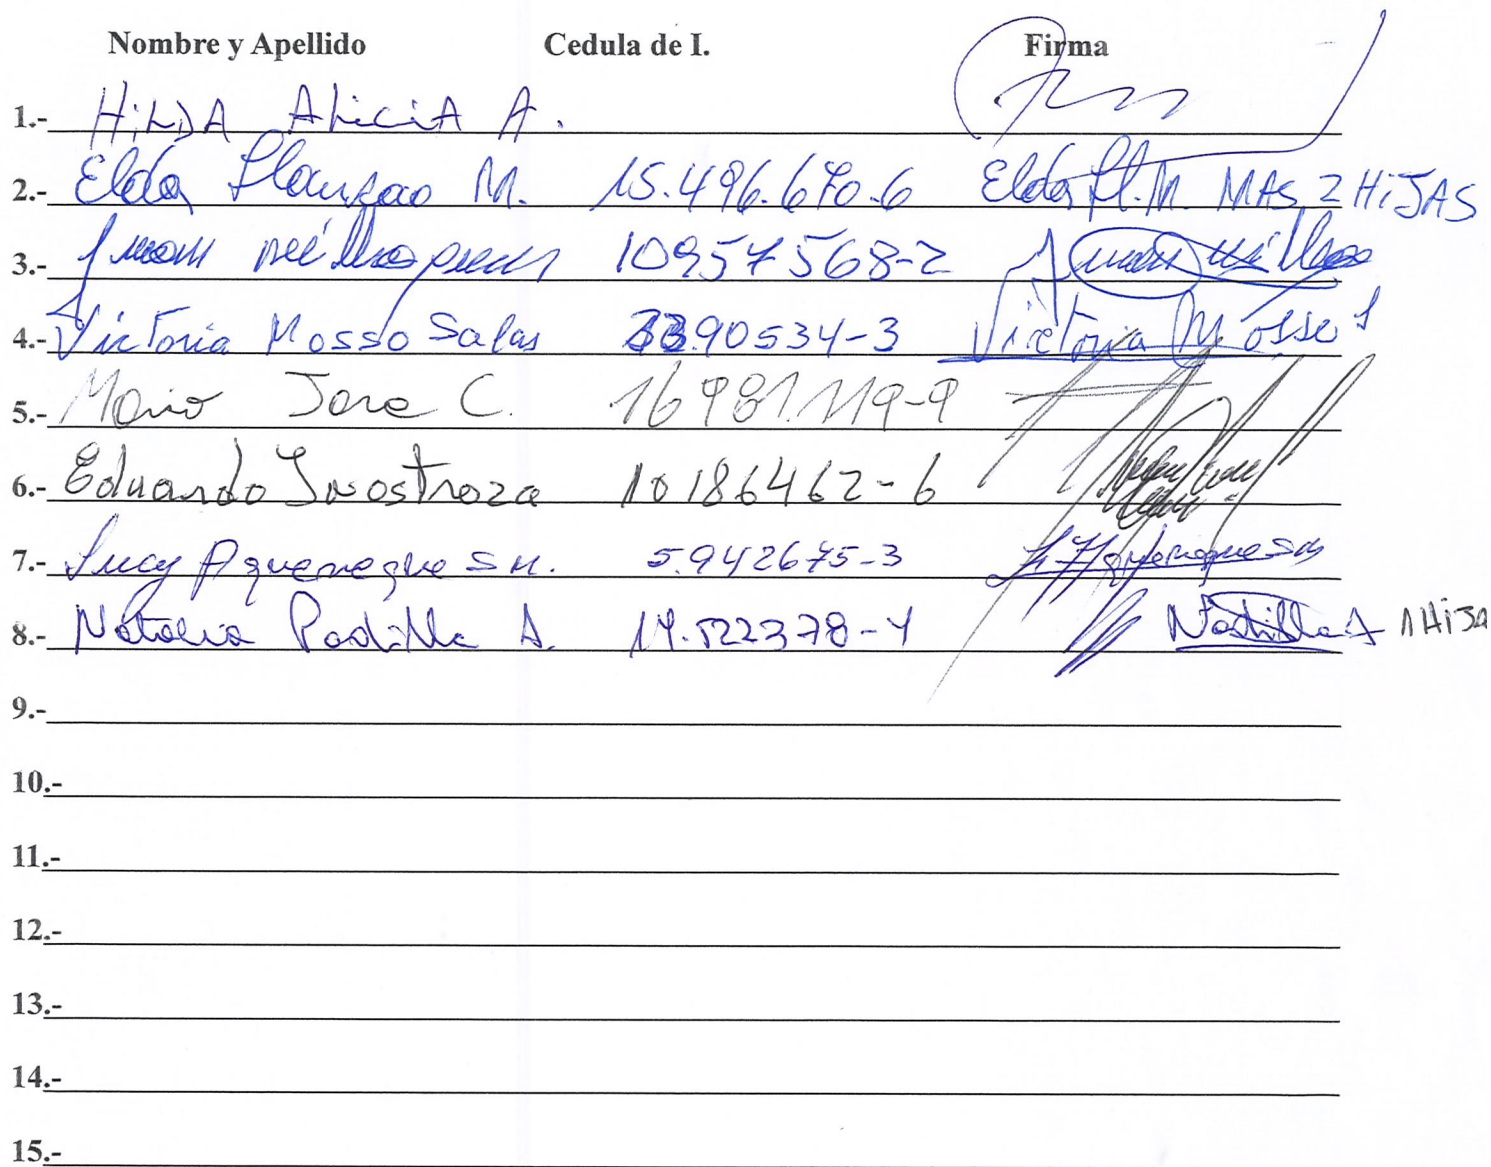 Nombre y Apellido Cedula de I. Firma
1.- HiLDA ALiCiA A.
2.- Elda M. 15.496.670-6 Elda Ll.M. MAS 2 HiJAS
3.- Juan 10957568-2 Juan
4.- Victoria Mosso Salas 90534-3 Victoria Mosso S
5.- Mario Jara C. 16981.119-9
6.- Eduardo Inostroza 10186462-6
7.- Lucy Aqueveque SM. 5.942675-3 L Aqueveque SM
8.- Natalia Padilla A. 14.522378-4 NPadilla A 1 HiJa
9.-
10.-
11.-
12.-
13.-
14.-
15.-